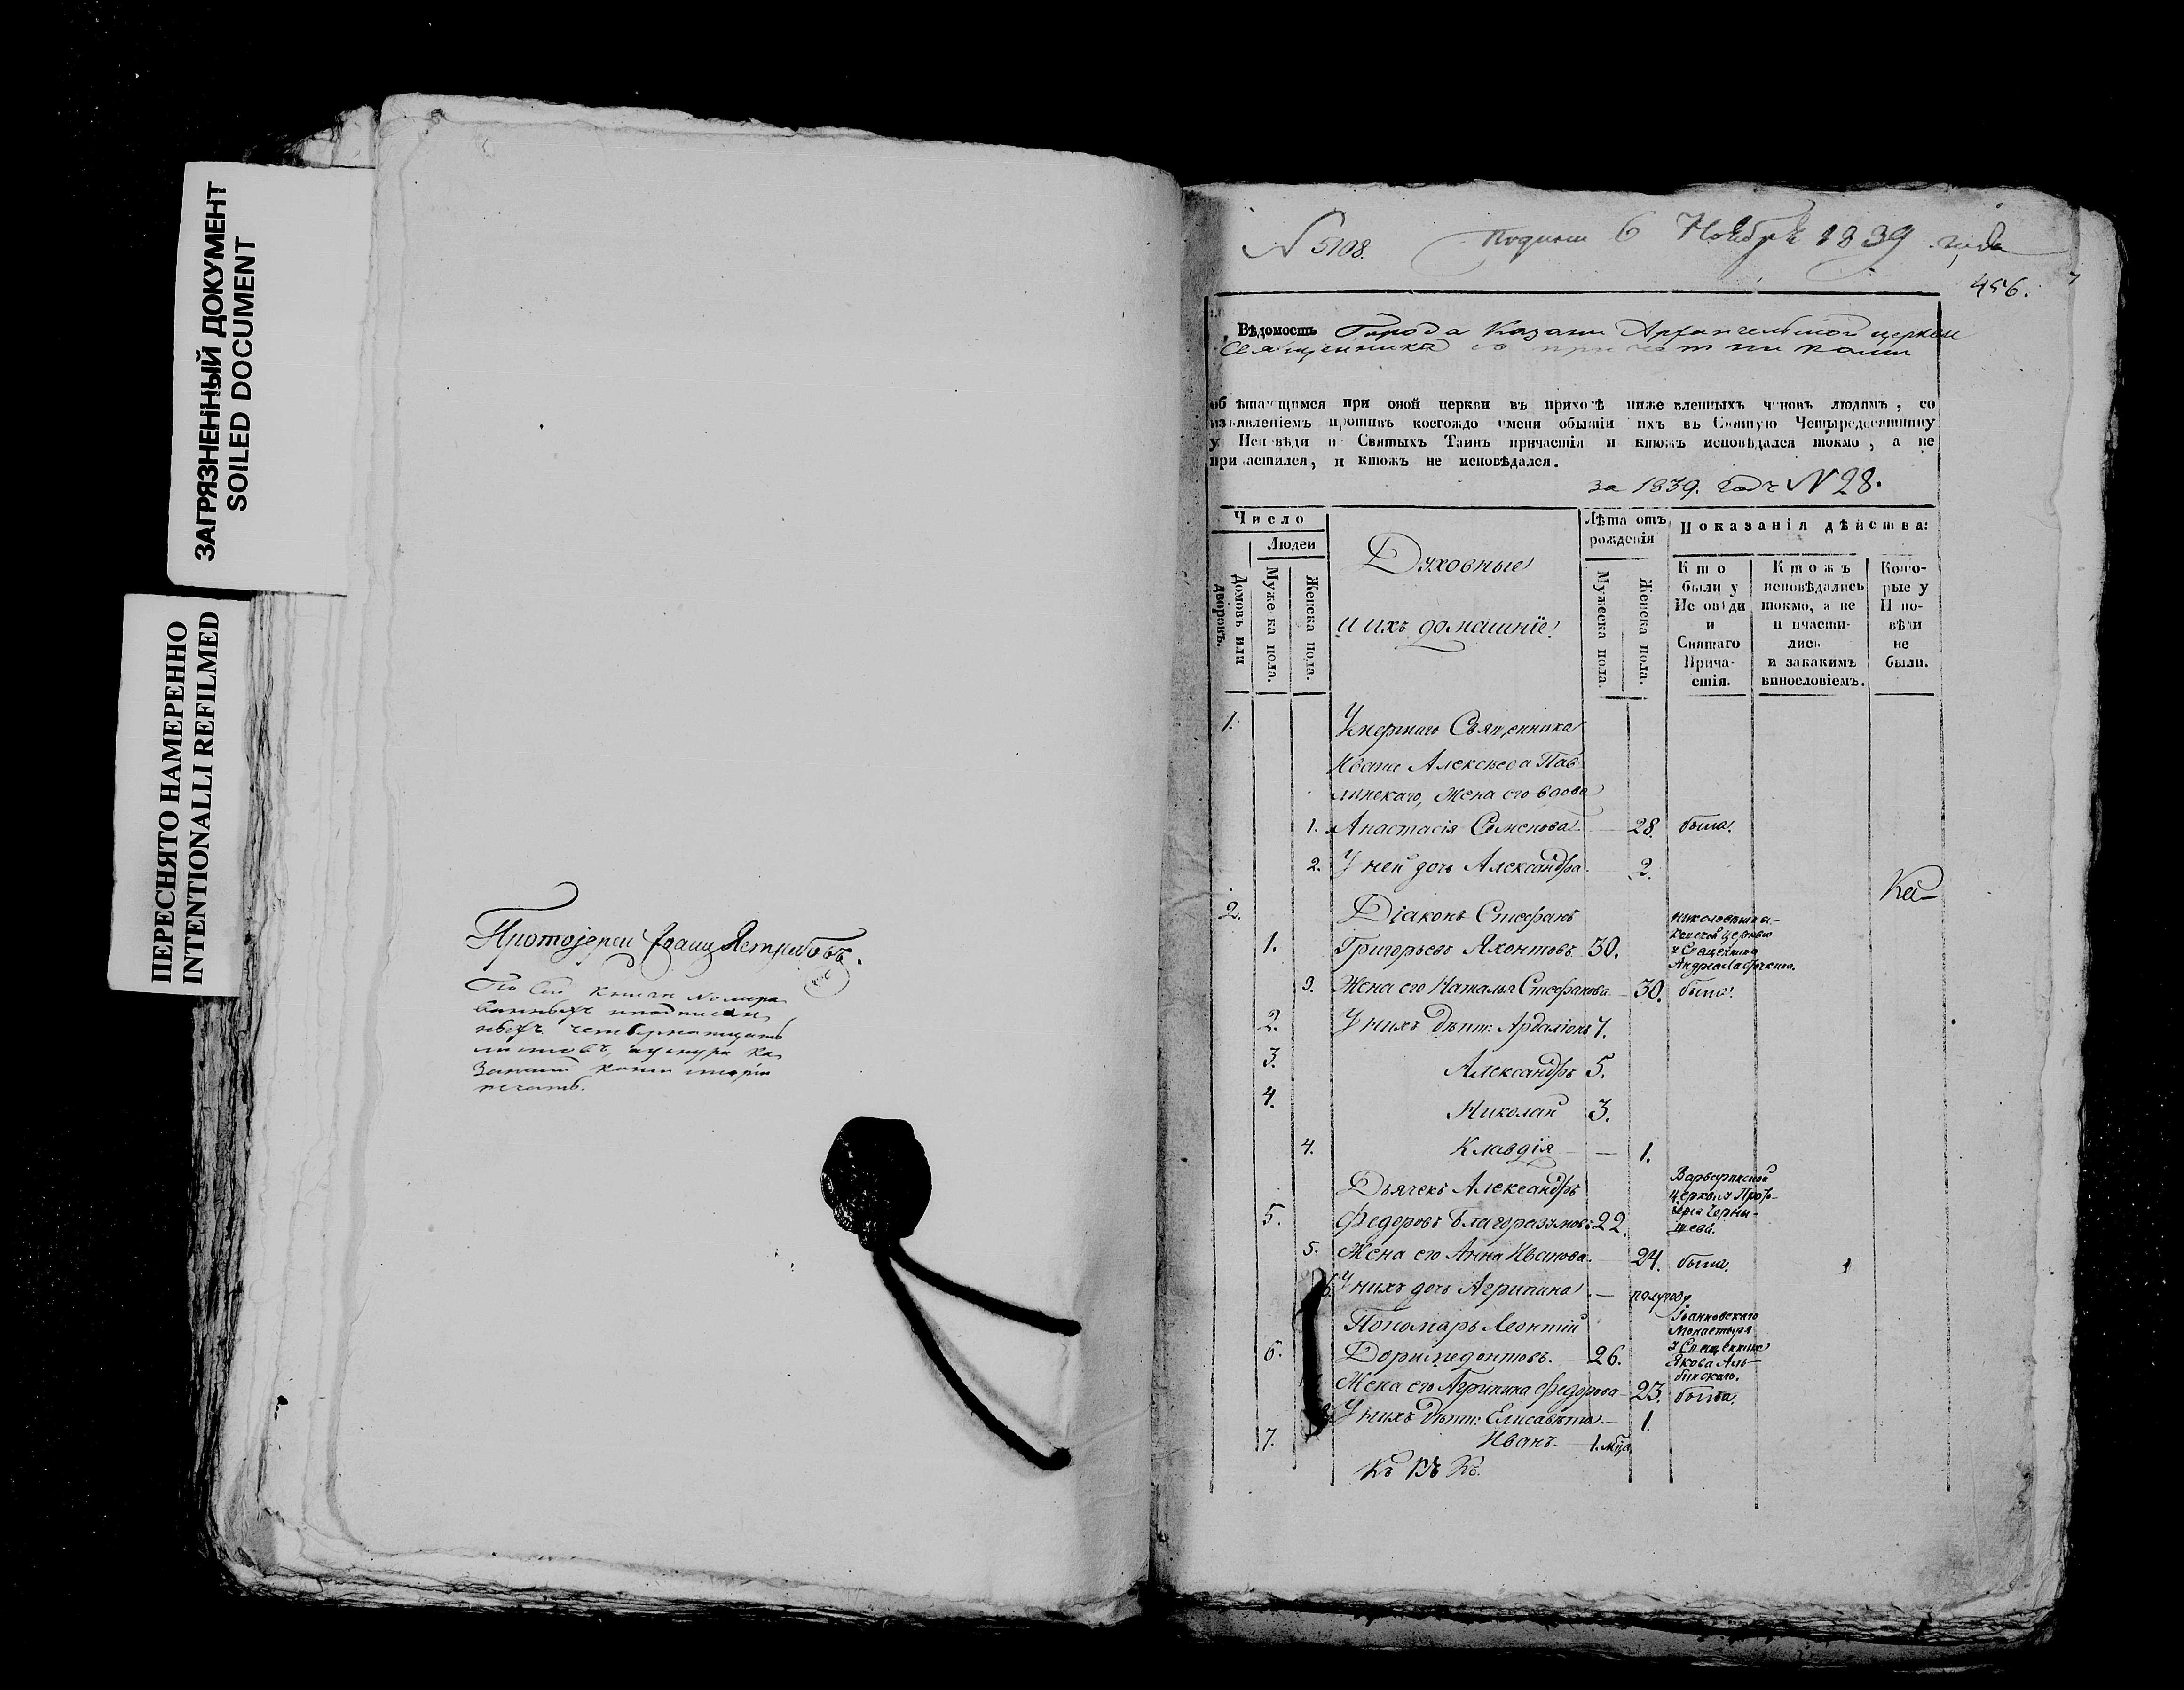 ЗАГРЯЗНЕННЫЙ ДОКУМЕНТ
SOILED DOCUMENT
ПЕРЕСНЯТО НАМЕРЕННО
INTENTIONALLI REFILMED
Протоіерей Іоаннъ Ястребовъ.
По сей книгѣ номеро
ванныхъ и подписан
ныхъ четырнатцать
листовъ, а у шнура Ка
занской Консисторіи
печать.
N 5108. Поданъ 6 Ноября 1839 года
456.
Вѣдомость Города Казани Архангельской церкви
Священника съ причетниками
обрѣтающимся при оной церкви въ приходѣ нижеявленныхъ чиновъ людямъ, со
изъявленіемъ противъ коегождо имени бытіи ихъ въ Святую Четыредесятницу
у Исповѣди и Святыхъ Таинъ причастія и ктожъ исповѣдался токмо, а не
причастился, и ктожъ не исповѣдался.
за 1839. годъ N 28.
Число
Людей
Домовъ или дворовъ.
Мужеска пола.
Женска пола.
Духовные
и ихъ домашніе.
Лѣта отъ рожденія
Мужеска пола.
Женска пола.
Показанія дѣйства:
Кто были у Исповѣди и Святаго Причастія.
Ктожъ исповѣдались токмо, а не причастились и закакимъ винословіемъ.
Которые у Исповѣди не были.
1. Умершаго Священника
Ивана Алексѣева Пав
линскаго, жена его вдова
1. Анастасія Семенова — 28. была.
2. У ней дочь Александра — 2.
2. Діаконъ Стефанъ
1. Григорьевъ Яхонтовъ 30.
церкви
у Священника
Андрея
3. Жена его Наталья Стефанова — 30. была.
2. У нихъ дѣти: Ардаліонъ 7.
3. Александръ 5.
4. Николай 3.
4. Клавдія — 1.
Дьячекъ Александръ
5. Федоровъ Благоразумовъ 22.
Варваринской
церкви у Прото-
іерея Черны-
шева.
5. Жена его Анна Иванова — 24. была.
6. У нихъ дочь Агрипина — полугоду
Пономарь Леонтій
6. Доримедонтовъ. — 26.
Іоанновскаго
Монастыря
у Священника
Якова Аль-
бинскаго.
Жена его Агрипина Федорова — 23. была.
8. У нихъ дѣти: Елисавета — 1.
7. Иванъ. — 1. мца.